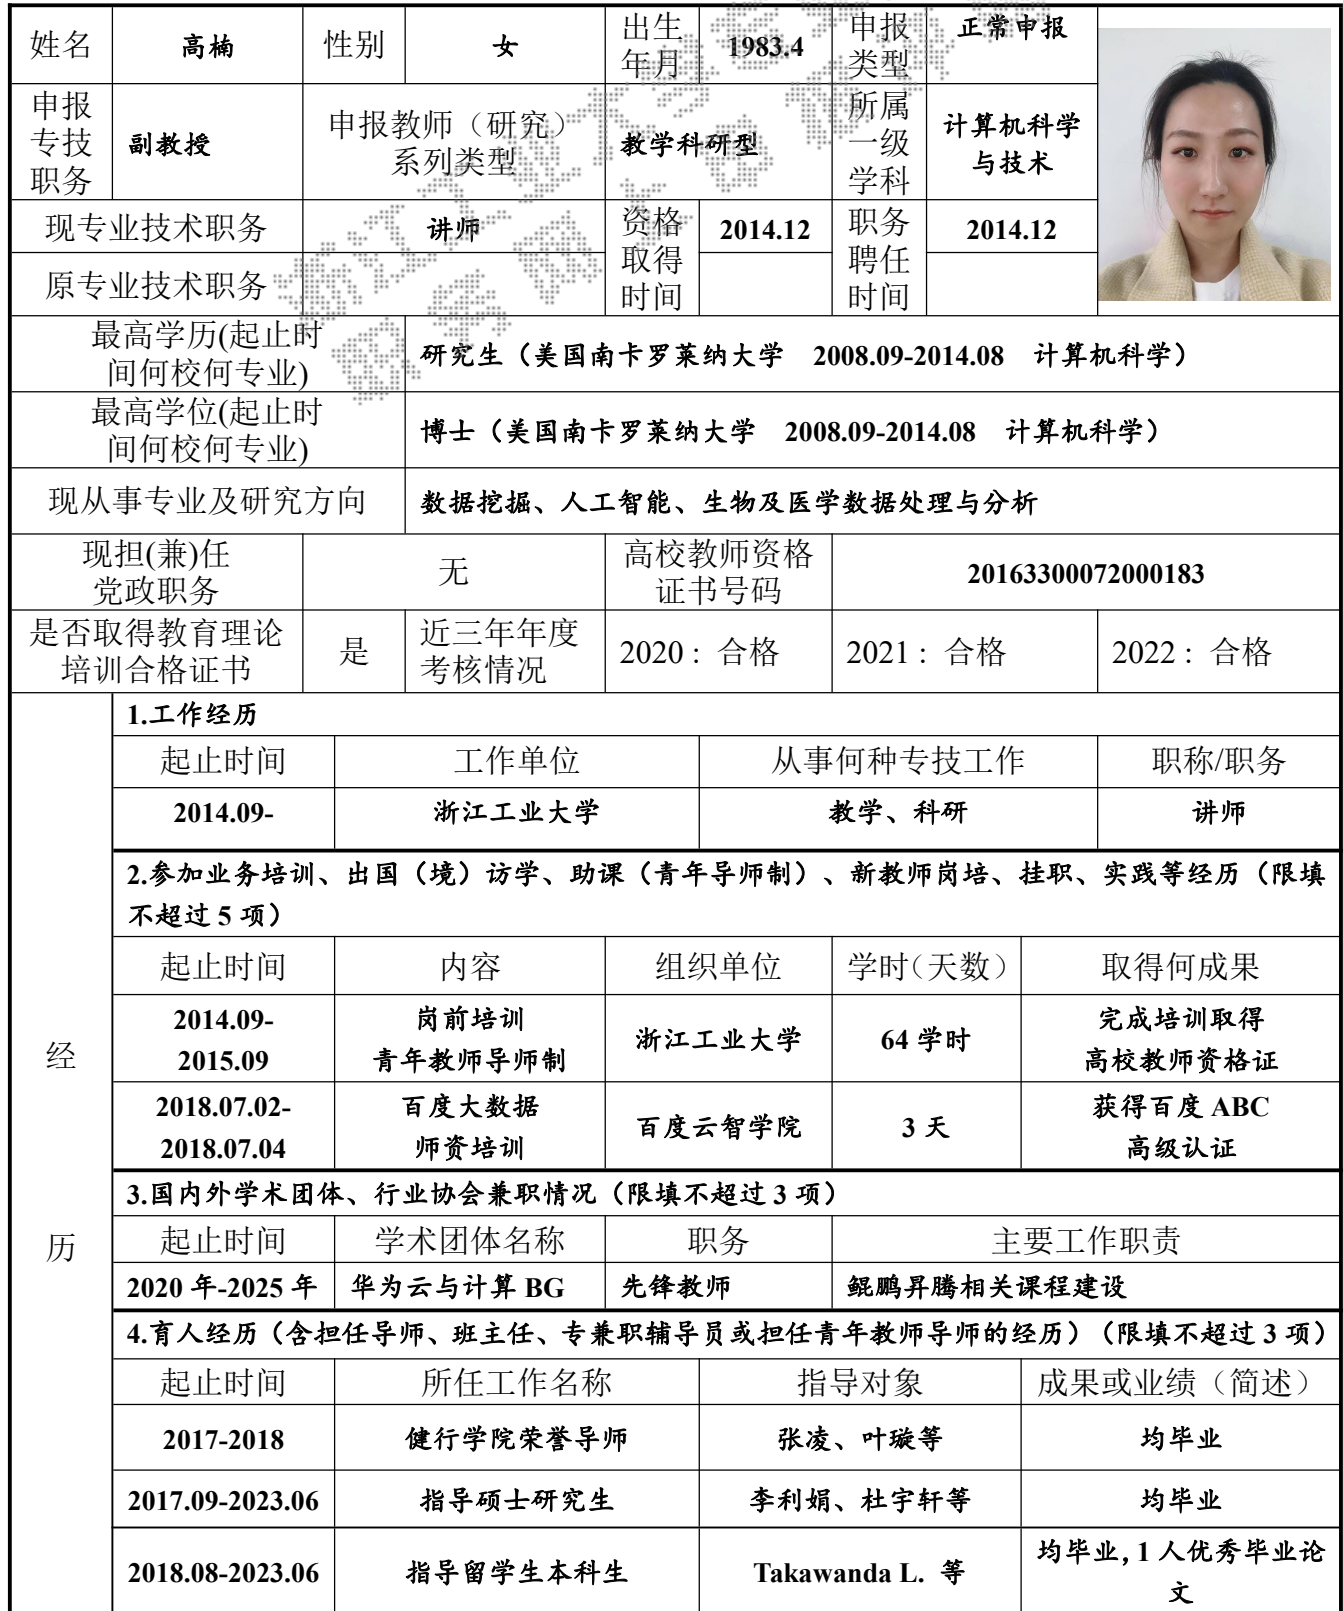 姓名 高楠 性别 女 出生年月 1983.4 申报类型 正常申报
申报专技职务 副教授 申报教师（研究）系列类型 教学科研型 所属一级学科 计算机科学与技术
现专业技术职务 讲师 资格取得时间 2014.12 职务聘任时间 2014.12
原专业技术职务
最高学历(起止时间何校何专业) 研究生（美国南卡罗莱纳大学 2008.09-2014.08 计算机科学）
最高学位(起止时间何校何专业) 博士（美国南卡罗莱纳大学 2008.09-2014.08 计算机科学）
现从事专业及研究方向 数据挖掘、人工智能、生物及医学数据处理与分析
现担(兼)任党政职务 无 高校教师资格证书号码 20163300072000183
是否取得教育理论培训合格证书 是 近三年年度考核情况 2020：合格 2021：合格 2022：合格
经历
1.工作经历
起止时间 工作单位 从事何种专技工作 职称/职务
2014.09- 浙江工业大学 教学、科研 讲师
2.参加业务培训、出国（境）访学、助课（青年导师制）、新教师岗培、挂职、实践等经历（限填
不超过 5 项）
起止时间 内容 组织单位 学时（天数） 取得何成果
2014.09-2015.09 岗前培训 青年教师导师制 浙江工业大学 64 学时 完成培训取得高校教师资格证
2018.07.02-2018.07.04 百度大数据师资培训 百度云智学院 3 天 获得百度 ABC 高级认证
3.国内外学术团体、行业协会兼职情况（限填不超过 3 项）
起止时间 学术团体名称 职务 主要工作职责
2020 年-2025 年 华为云与计算 BG 先锋教师 鲲鹏昇腾相关课程建设
4.育人经历（含担任导师、班主任、专兼职辅导员或担任青年教师导师的经历）（限填不超过 3 项）
起止时间 所任工作名称 指导对象 成果或业绩（简述）
2017-2018 健行学院荣誉导师 张凌、叶璇等 均毕业
2017.09-2023.06 指导硕士研究生 李利娟、杜宇轩等 均毕业
2018.08-2023.06 指导留学生本科生 Takawanda L. 等 均毕业，1 人优秀毕业论文